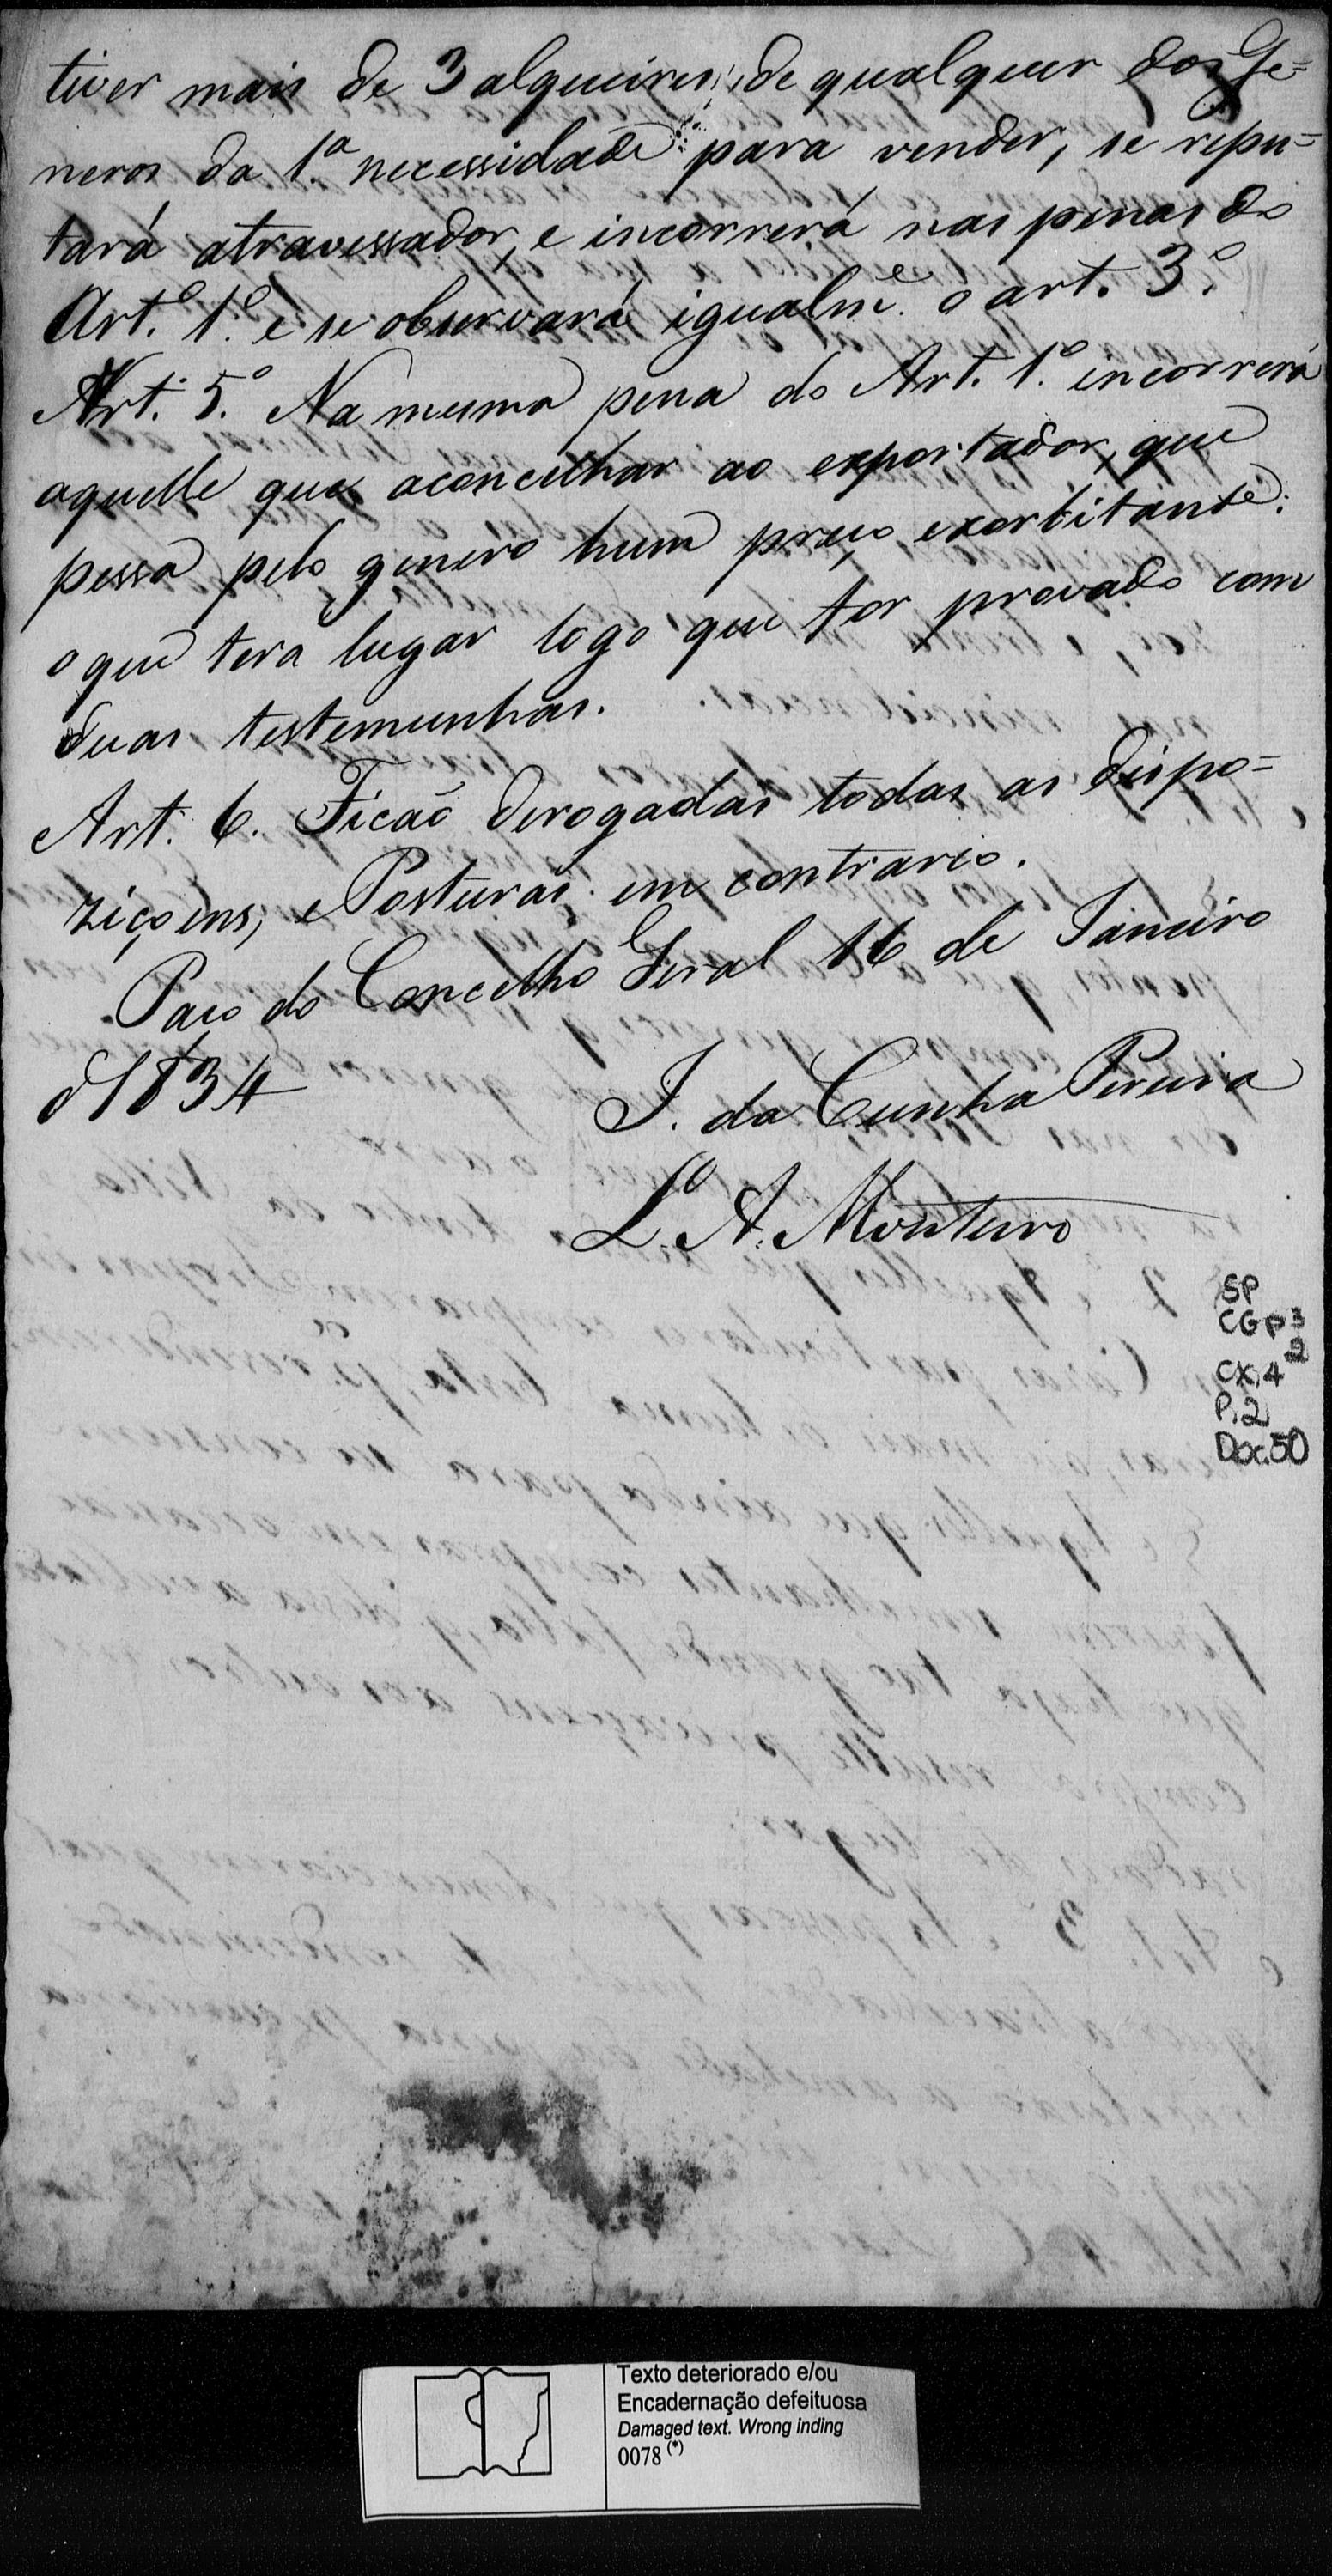 tiver mais de 3 alqueires, de qualquer dos Ge=
neros da 1.ª necessidade para vender, se repu=
tará atravessador, e incorrerá nas penas do
Art.º 1.º e se observará igualm.e o art. 3.º
Art. 5.º Na mesma pena do Art. 1.º incorrerá
aquelle que aconcelhar ao exportador, que
pessa pelo genero hum preço exorbitante:
o que tera lugar logo que for provado com
duas testemunhas.
Art. 6. Ficaõ derogadas todas as dispo=
ziçoens, e Posturas em contrario.
Paço do Concelho Geral 16 de Janeiro
d 1834
J. da Cunha Pereira
L.º A. Monteiro
SP
CGP3
2
CX.4
P.2
Doc.50
Texto deteriorado e/ou
Encadernação defeituosa
Damaged text. Wrong inding
0078 (*)